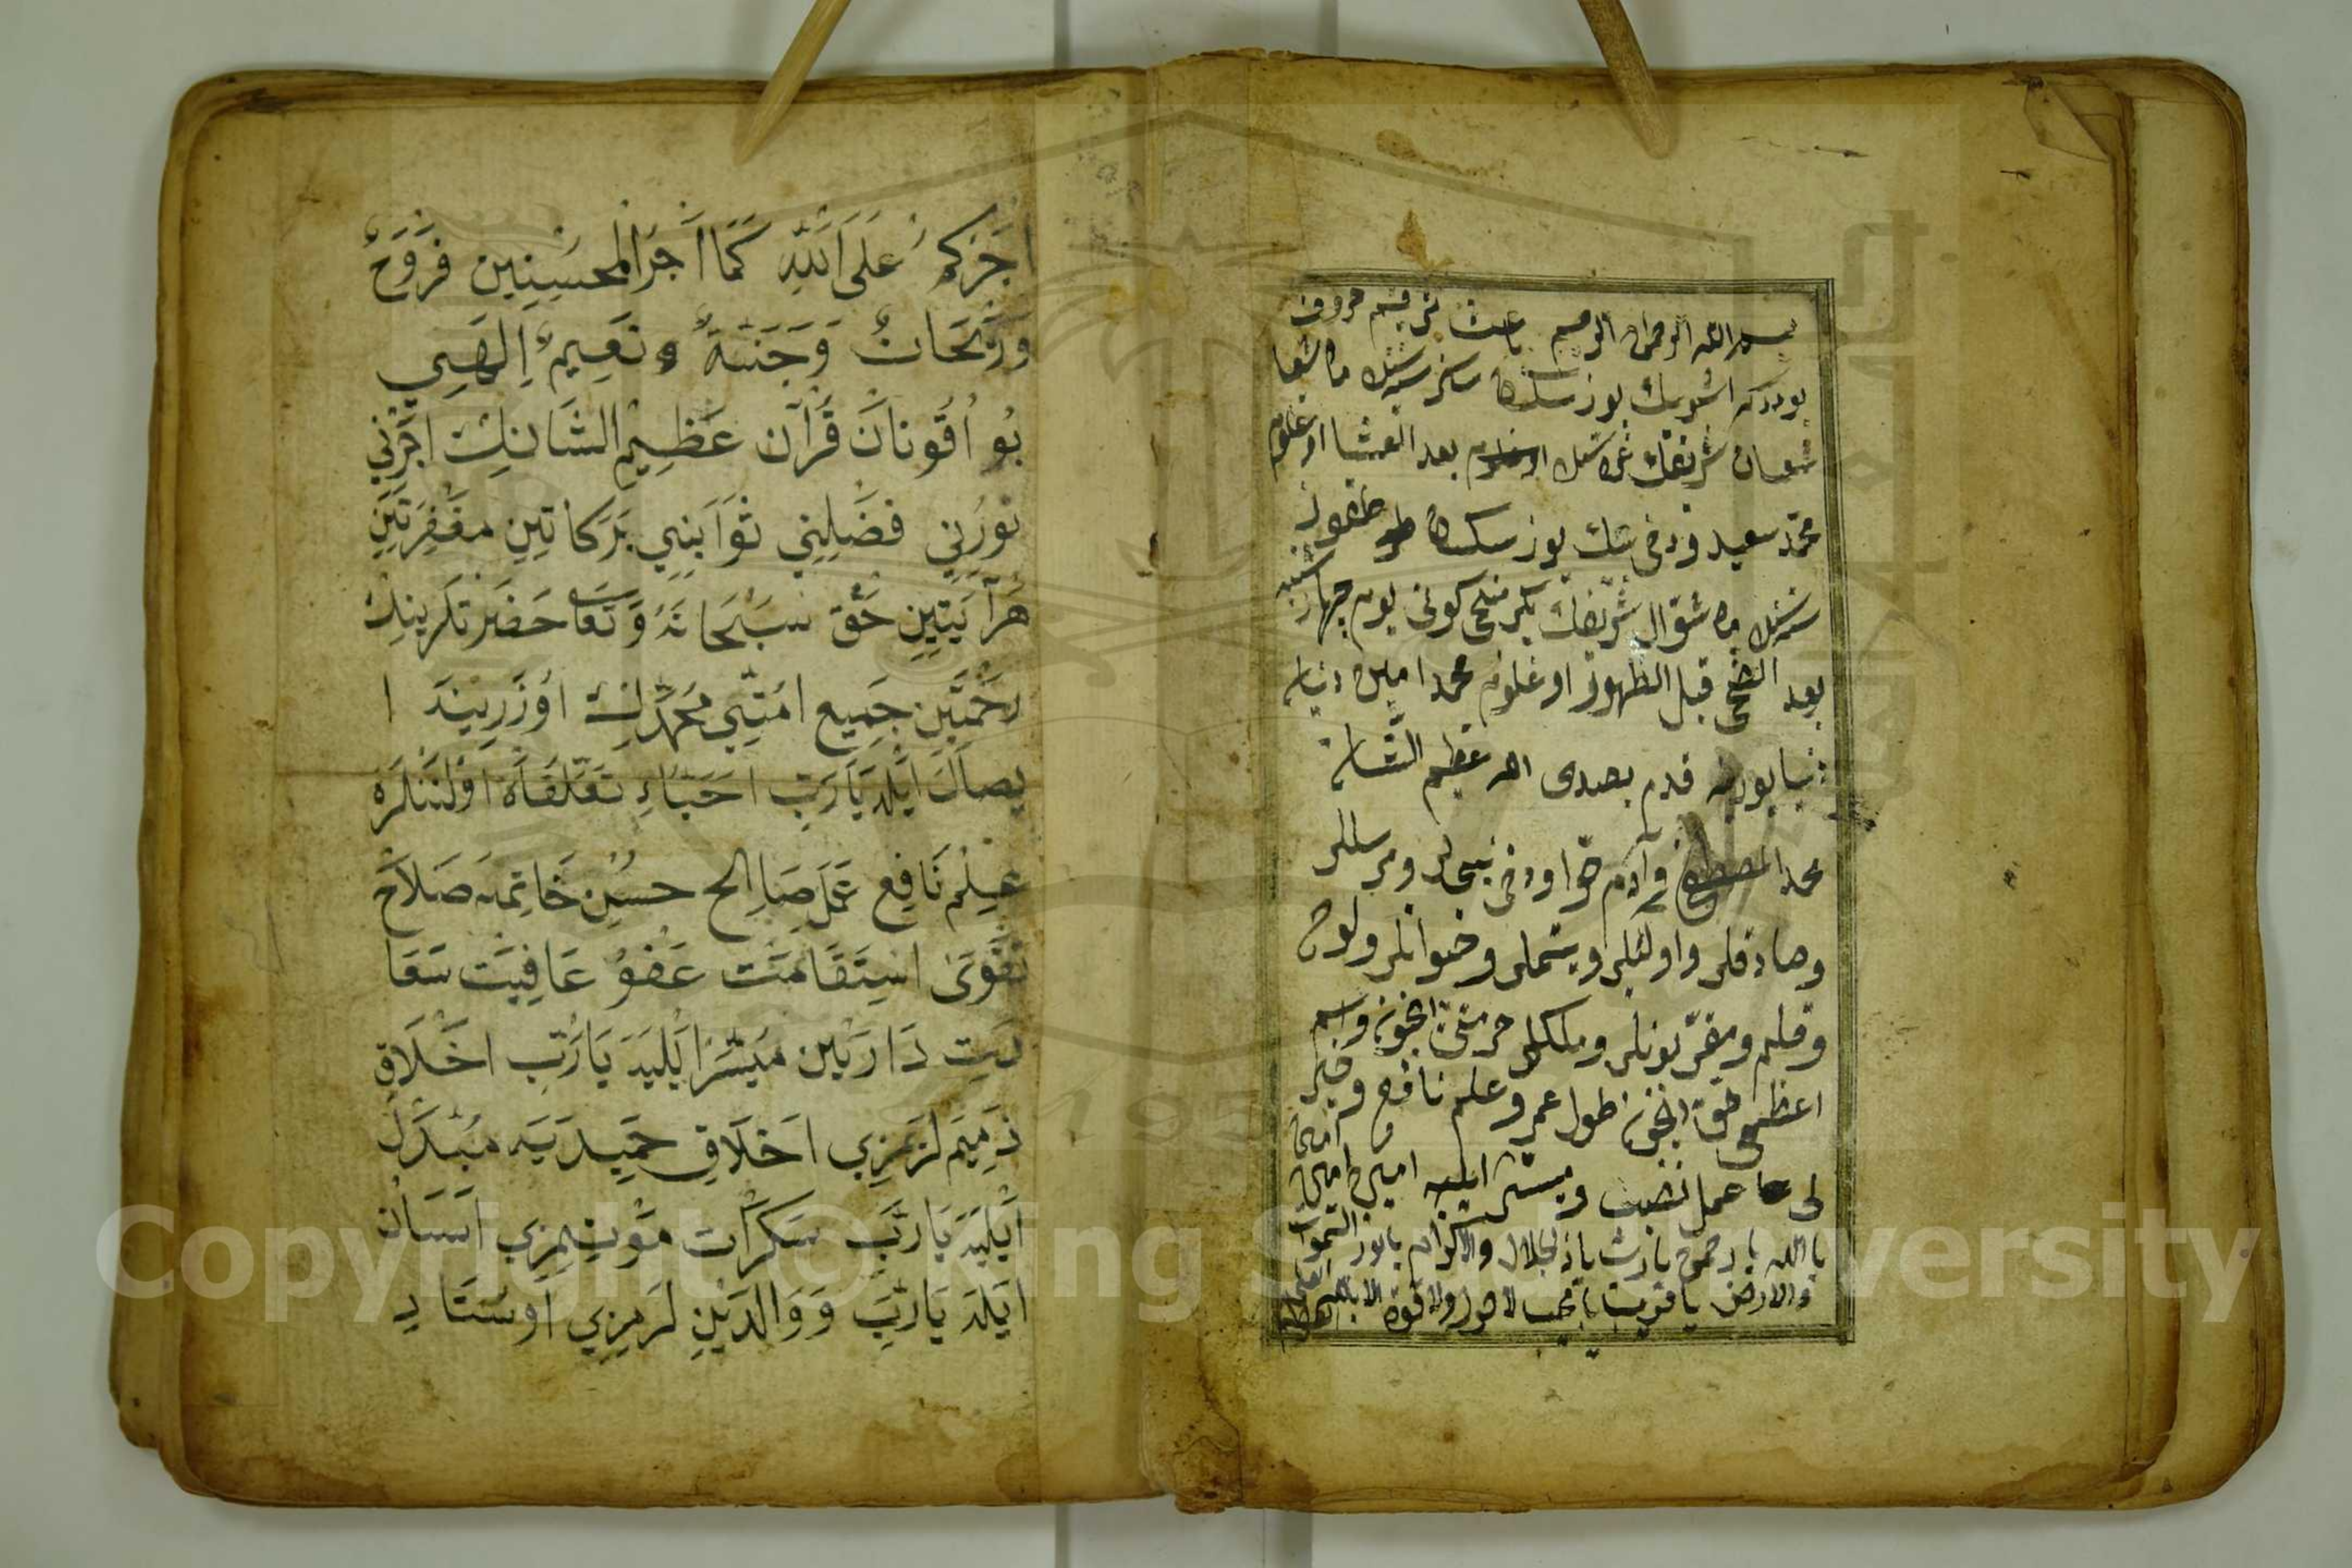 بسم الله الرحمن الرحيم باعث ترقيم حروف
بودركه اشبو بيك يوز سكسان سكز سنه سنك ماه شعبا
شعبان شريفك غره سنده بعد العشا اوغلوم
محمد سعيد بيك يوز سكسان طقوز
سنه سنك ماه شوال شريفك يكرمنجى كونى يوم چهار شنبه
بعد الضحى قبل الظهور اوغلوم محمد امين دنيايه
قدم بصدى الله عظيم الشانه
محمد المصطفى وآدم نبيلر ومرسللر
وصادقلر واوليلر ويتيملر ولوح
وقلم ومقربونلر وملكلر حرمتى ايچون واسم
اعظم حقى ايچون طول عمر وعلم نافع وخير
لى عمل نصيب وميسر ايليه امين امين
يا الله يا رحمن يا رب يا ذالجلال والاكرام يا نور السموات
والارض يا قريب يا مجيب لا حول ولا قوة الا بالله
اجركم على الله كما اجر المحسنين فَرَوْحٌ
وَرَيْحَانٌ وَجَنَّةُ نَعِيمٍ اِلٰهِي
بُو اُقُونَانْ قُرْآن عَظِيمُ الشَّانِكْ اَجْرِنِي
نُورِنِي فَضْلِنِي ثَوَابِنِي بَرَكَاتِينِ مَغْفِرَتِينِ
هَرْ آيَتِينِ حَقْ سُبْحَانَهُ وَتَعَالَى حَضْرَتْلَرِينِكْ
رَحْمَتِين جَمِيع اُمَّتِي مُحَمَّدِكْ اُوزَرِينَه ا
يصَالْ اَيْلَه يَارَبِّ اَحِبَّاءِ تَعَلُّقَاتْ اُولَنْلَرَه
عِلْم نَافِع عَمَل صَالِح حُسْنِ خَاتِمَه صَلَاح
تَقْوَى اِسْتِقَامَت عَفْو عَافِيَت سَعَا
دَتِ دَارَيْن مُيَسَّر اَيْلَيَه يَارَبِّ اَخْلَاقِ
ذَمِيمَلَرِمِزِي اَخْلَاقِ حَمِيدَيَه مُبَدَّل
اَيْلَيَه يَارَبِّ سَكَرَات مَوْتِمِزِي آسَان
اَيْلَه يَارَبِّ وَوَالِدَيْنْلَرِمِزِي اُوسْتَادِ
Copyright © King Saud University